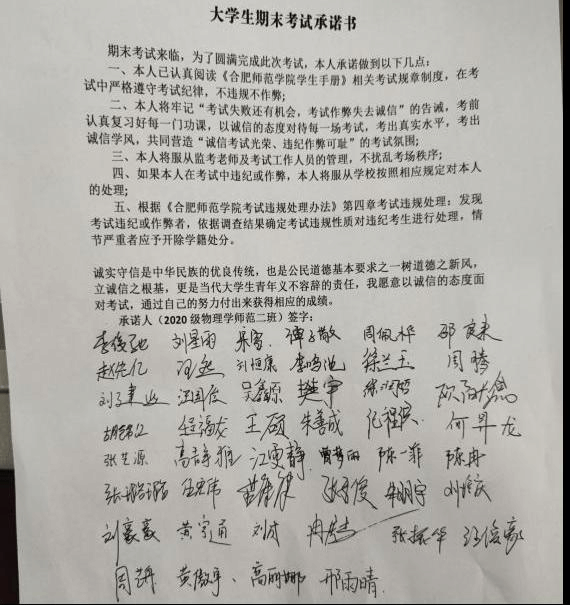 大学生期末考试承诺书
期末考试来临，为了圆满完成此次考试，本人承诺做到以下几点：
一、本人已认真阅读《合肥师范学院学生手册》相关考试规章制度，在考
试中严格遵守考试纪律，不违规不作弊;
二、本人将牢记“考试失败还有机会，考试作弊失去诚信”的告诫，考前
认真复习好每一门功课，以诚信的态度对待每一场考试，考出真实水平，考出
诚信学风，共同营造“诚信考试光荣、违纪作弊可耻”的考试氛围;
三、本人将服从监考老师及考试工作人员的管理，不扰乱考场秩序;
四、如果本人在考试中违纪或作弊，本人将服从学校按照相应规定对本人
的处理;
五、根据《合肥师范学院考试违规处理办法》第四章考试违规处理：发现
考试违纪或作弊者，依据调查结果确定考试违规性质对违纪考生进行处理，情
节严重者应予开除学籍处分。
诚实守信是中华民族的优良传统，也是公民道德基本要求之一树道德之新风，
立诚信之根基，更是当代大学生青年义不容辞的责任，我愿意以诚信的态度面
对考试，通过自己的努力付出来获得相应的成绩。
承诺人（2020 级物理学师范二班）签字：
李俊驰 刘星雨 周佩桦
赵先亿 刘恒康 李鸣池 徐兰玉 周腾
汪国俊 吴鑫源 樊宇
程福龙 王硕 朱善成 何昇龙
张芝源 高静雅 江雯静 曾梦雨 陈一菲 陈冉
张璐璐
刘豪豪 刘才 张振华 汪俊豪
高丽娜 邢雨晴